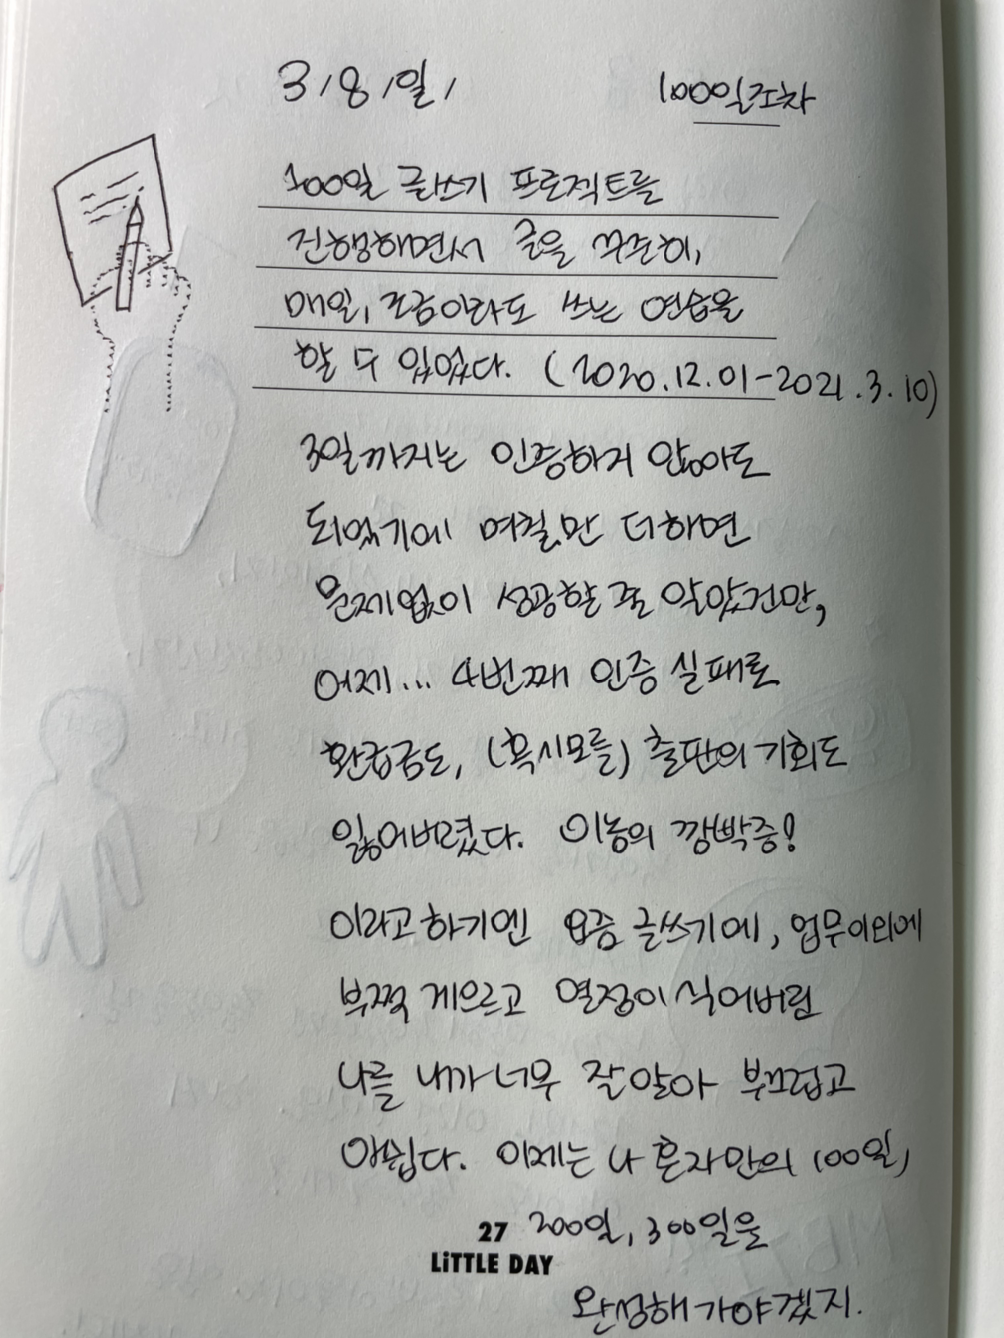 3/8/일/
100일조차
100일 글쓰기 프로젝트를
진행하면서 글을 꾸준히,
매일, 조금이라도 쓰는 연습을
할 수 있었다. (2020.12.01-2021.3.10)
3일까지는 인증하지 않아도
되었기에 며칠만 더하면
문제없이 성공할 줄 알았건만,
어제... 4번째 인증 실패로
환급금도, (혹시모를) 출판의 기회도
잃어버렸다. 이놈의 깜빡증!
이라고 하기엔 요즘 글쓰기에, 업무이외에
부쩍 게으르고 열정이 식어버림
나를 내가 너무 잘 알아 부끄럽고
아쉽다. 이제는 나 혼자만의 100일,
200일, 300일을
완성해 가야겠지.
27
LiTTLE DAY